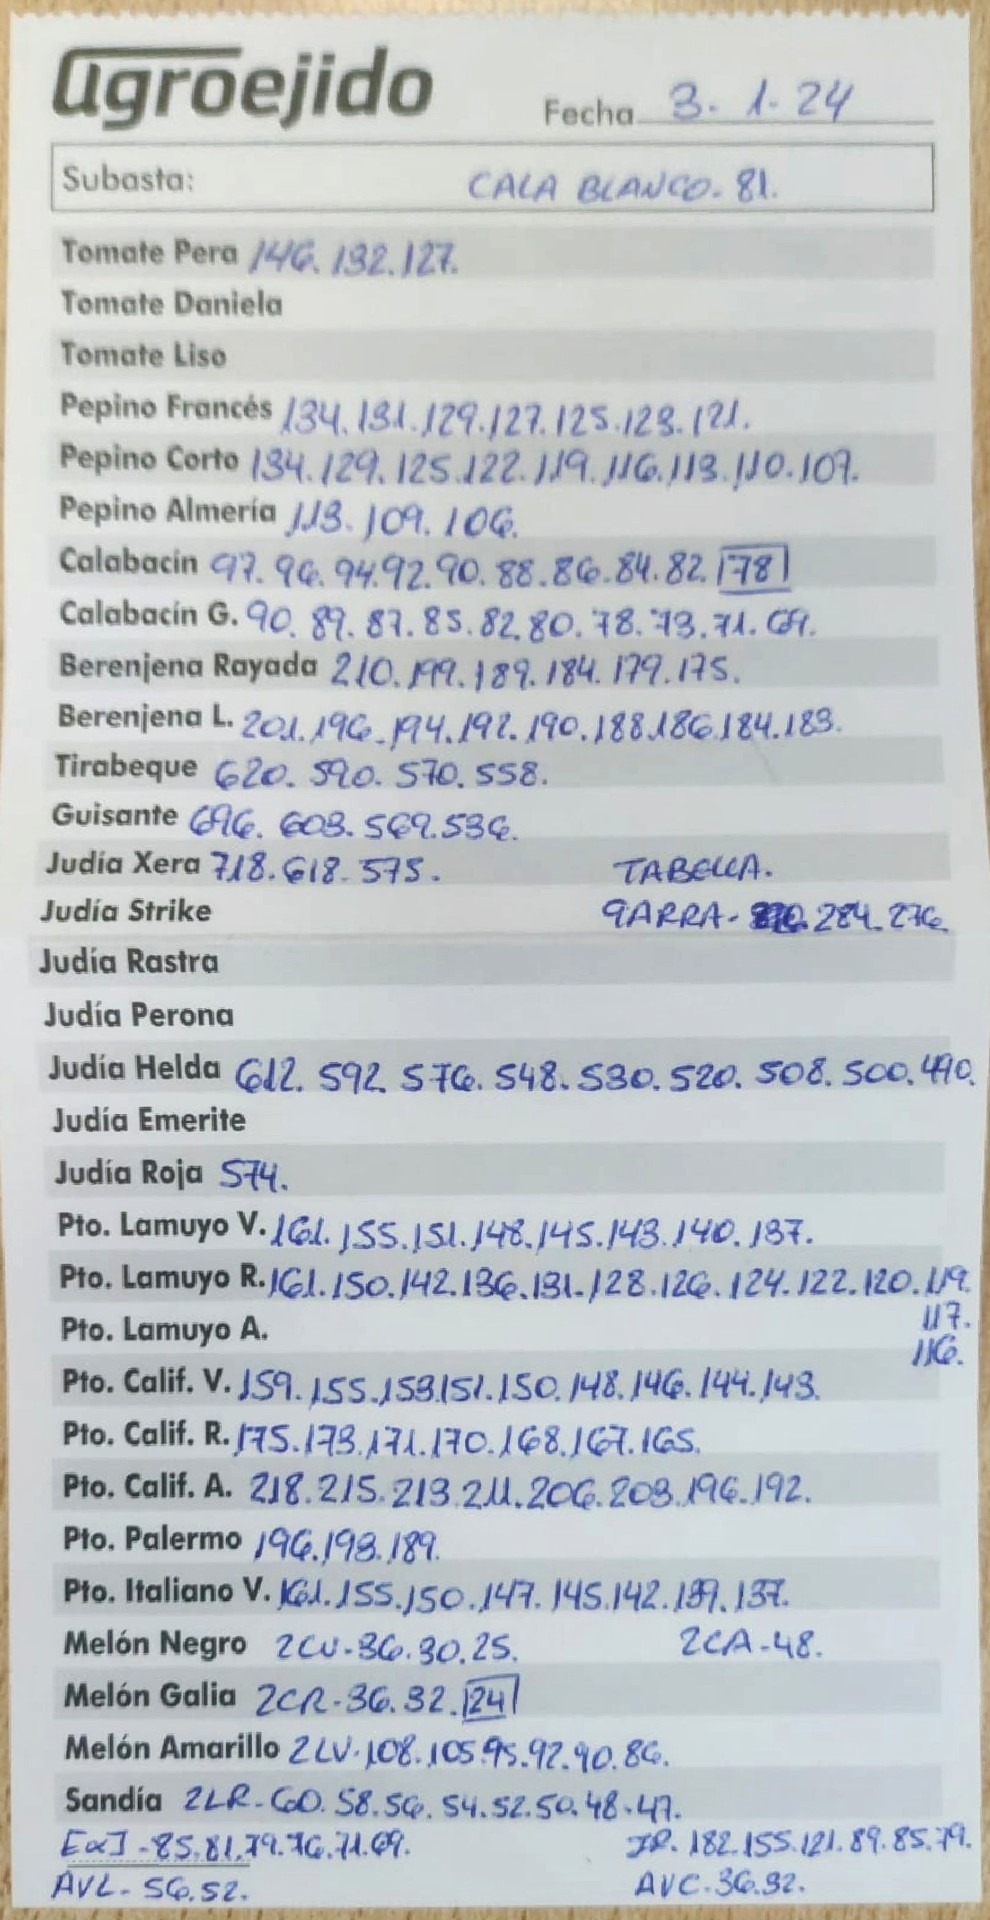 agroejido
Fecha 3.1.24
Subasta: CALA BLANCO. 81.
Tomate Pera 146. 132. 127.
Tomate Daniela
Tomate Liso
Pepino Francés 134. 131. 129. 127. 125. 123. 121.
Pepino Corto 134. 129. 125. 122. 119. 116. 113. 110. 107.
Pepino Almería 113. 109. 106.
Calabacín 97. 96. 94. 92. 90. 88. 86. 84. 82. 78
Calabacín G. 90. 89. 87. 85. 82. 80. 78. 73. 71. 69.
Berenjena Rayada 210. 199. 189. 184. 179. 175.
Berenjena L. 201. 196. 194. 192. 190. 188. 186. 184. 183.
Tirabeque 620. 590. 570. 558.
Guisante 696. 603. 569. 536.
Judía Xera 718. 618. 575. TABELLA.
Judía Strike GARRA - 284. 276.
Judía Rastra
Judía Perona
Judía Helda 612. 592. 576. 548. 530. 520. 508. 500. 490.
Judía Emerite
Judía Roja 574.
Pto. Lamuyo V. 161. 155. 151. 148. 145. 143. 140. 137.
Pto. Lamuyo R. 161. 150. 142. 136. 131. 128. 126. 124. 122. 120. 119.
117.
Pto. Lamuyo A.
116.
Pto. Calif. V. 159. 155. 153. 151. 150. 148. 146. 144. 143.
Pto. Calif. R. 175. 173. 171. 170. 168. 167. 165.
Pto. Calif. A. 218. 215. 213. 211. 206. 203. 196. 192.
Pto. Palermo 196. 193. 189.
Pto. Italiano V. 161. 155. 150. 147. 145. 142. 139. 137.
Melón Negro 2CV - 36. 30. 25. 2CA - 48.
Melón Galia 2CR - 36. 32. 24
Melón Amarillo 2LV. 108. 105. 95. 92. 90. 86.
Sandía 2LR - 60. 58. 56. 54. 52. 50. 48. 47.
- 85. 81. 79. 76. 71. 69. JR. 182. 155. 121. 89. 85. 79.
AVL - 56. 52. AVC. 36. 32.